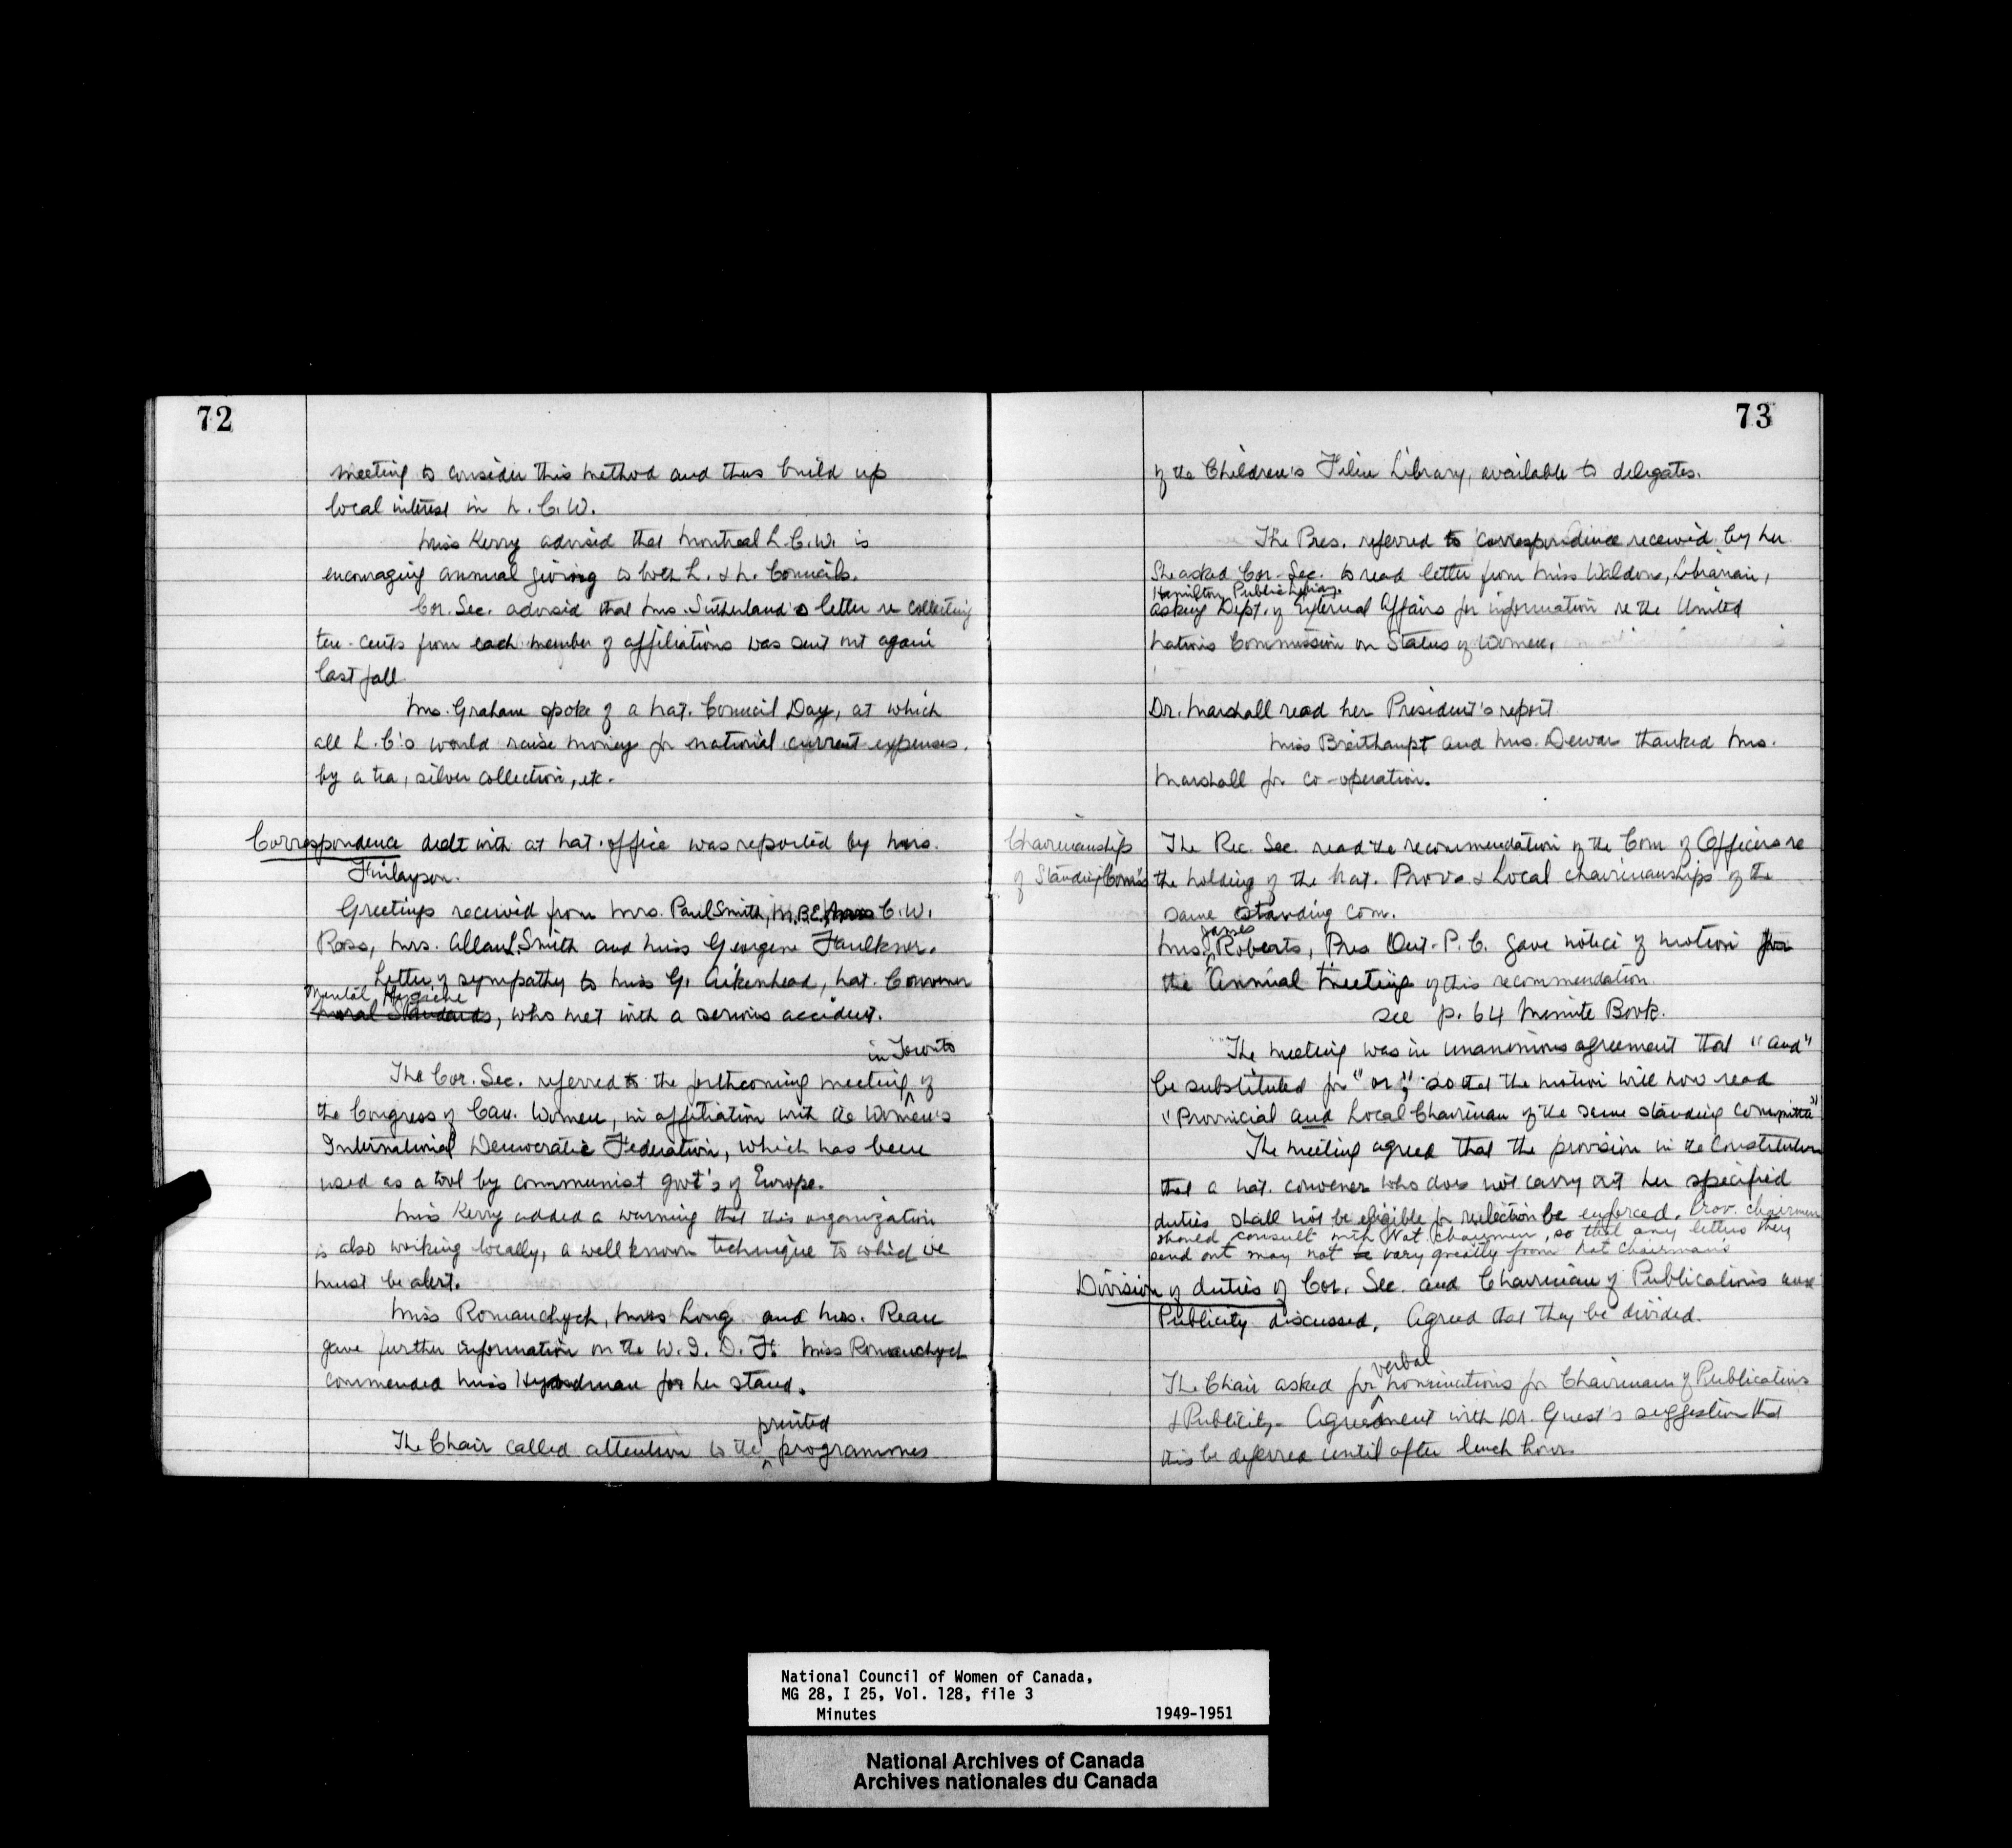 72
meeting to consider this method and thus build up
local interest in N.C.W.
Miss Kerry advised that Montreal L.C.W. is
encouraging annual giving to both L. & N. Councils.
Cor. Sec. advised that Mrs. Sutherland's letter re collecting
ten-cents from each member of affiliations was sent out again
last fall
Mrs. Graham spoke of a Nat. Council Day, at which
all L.C.'s would raise money for national current expenses.
by a tea, silver collection, etc.
Correspondence dealt with at Nat. office was reported by Mrs.
Finlayson.
Greetings received from Mrs. Paul Smith, M.B.E., Mrs C.W.
Ross, Mrs. Allan L. Smith and Miss Georgene Faulkner.
Letter of sympathy to Miss G. Aikenhead, Nat. Convener
Mental Hygiene
Moral Standards, who met with a serious accident.
in Toronto
The Cor. Sec. referred to the forthcoming meeting of
the Congress of Can. Women, in affiliation with the Women's
International Democratic Federation, which has been
used as a tool by communist govt's of Europe.
Miss Kerry added a warning that this organization
is also working locally, a well known technique to which we
must be alert.
Miss Romanchych, Mrs Long and Mrs. Reau
gave further information on the W.I.D.F. Miss Romanchych
commended Miss Hyndman for her stand.
printed
The Chair called attention to the ^ programmes
73
of the Children's Film Library, available to delegates.
The Pres. referred to correspondence received by her
She asked Cor-Sec. to read letter from Miss Waldon, Librarian,
Hamilton Public Library.
asking Dept. of External Affairs for information re the United
Nations Commission on Status of Women.
Dr. Marshall read her President's report
Miss Breithaupt and Mrs. Dewar thanked Mrs.
Marshall for co-operation.
Chairmanship
of Standing Com's
The Rec. Sec. read the recommendation of the Com of Officers re
the holding of the Nat. Prov. & Local chairmanships of the
same standing com.
James
Mrs. ^ Roberts, Pres Ont-P.C. gave notice of motion for
the Annual Meeting of this recommendation
see p. 64 Minute Book.
The meeting was in unanimous agreement that "and"
be substituted for "or", so that the motion will now read
"Provincial and Local Chairman of the same standing committee"
The meeting agreed that the provision in the Constitution
that a Nat. convener who does not carry out her specified
duties shall not be eligible for reelection be enforced. Prov. chairmen
should consult with Nat chairmen, so that any letters they
send out may not be vary greatly from Nat Chairman's
Division of duties of Cor. Sec. and Chairman of Publications and
Publicity discussed. Agreed that they be divided.
verbal
The Chair asked for ^ nominations for Chairman of Publications
& Publicity - Agreement with Dr. Guest's suggestion that
this be deferred until after lunch hour
National Council of Women of Canada,
MG 28, I 25, Vol. 128, file 3
Minutes 1949-1951
National Archives of Canada
Archives nationales du Canada